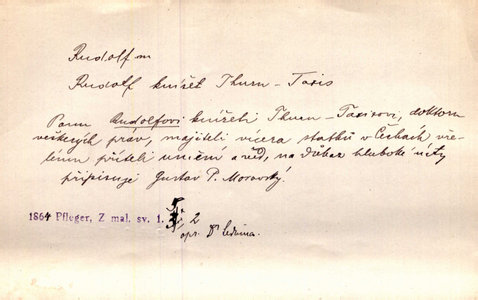 Rudolf m
Rudolf kníže Thurn-Taxis
Panu Rudolfovi knížeti Thurn-Taxisovi, doktoru
veškerých práv, majiteli vícera statků v Čechách vře-
lému příteli umění a věd, na důkaz hluboké úcty
připisuje Gustav P. Moravský.
1864 Pfleger, Z mal. sv. 1. 2
opr. Dr